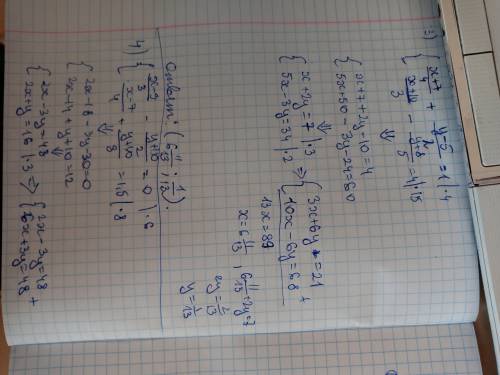 3) { \frac{x+7}{4} + \frac{y-5}{2} = 1 |·4
\frac{x+10}{3} - \frac{y+8}{5} = 4 |·15
⇓
{ x+7+2y-10=4
5x+50-3y-24=60
⇓
{ x+2y=7 |·3
5x-3y=34 |·2 ⇒ { 3x+6y=21 +
10x-6y=68
13x=89
x=6\frac{11}{13} ; 6\frac{11}{13}+2y=7
2y=\frac{2}{13}
y=\frac{1}{13}
Ответ: (6\frac{11}{13}; \frac{1}{13}).
4) { \frac{x-9}{3} - \frac{y+10}{2} = 0 |·6
\frac{x-7}{4} + \frac{y+10}{8} = 1,5 |·8
⇓
{ 2x-18-3y-30=0
2x-14+y+10=12
⇓
{ 2x-3y=48
2x+y=16 |·3 ⇒ { 2x-3y=48 +
6x+3y=48